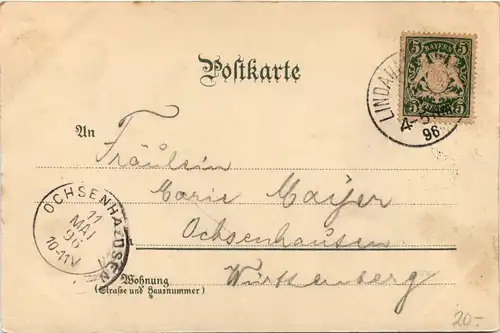 Postkarte
BAYERN
5 5
5 5
LINDAU
4-5
96
An
Fräulein
Marie Mayer
Ochsenhausen
Württemberg
OCHSENHAUSEN
11
MAI
96
10-11V
Wohnung
(Straße und Hausnummer)
20.-